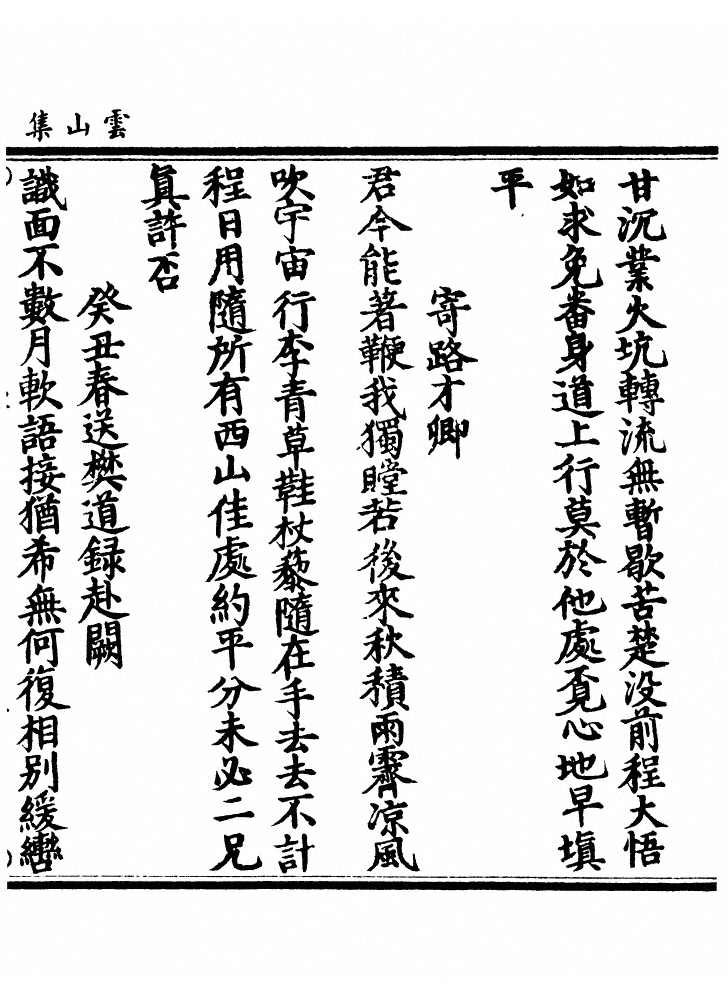 雲山集
甘沉業火坑轉流無暫歇苦楚没前程大悟
如求免番身道上行莫於他處覔心地早塡
平
寄路才卿
君今能著鞭我獨瞠若後來秋積雨霽凉風
吹宇宙行李青草鞋杖藜隨在手去去不計
程日用隨所有西山佳處約平分未必二兄
眞許否
癸丑春送樊道録赴闕
識面不數月軟語接猶希無何復相别緩轡